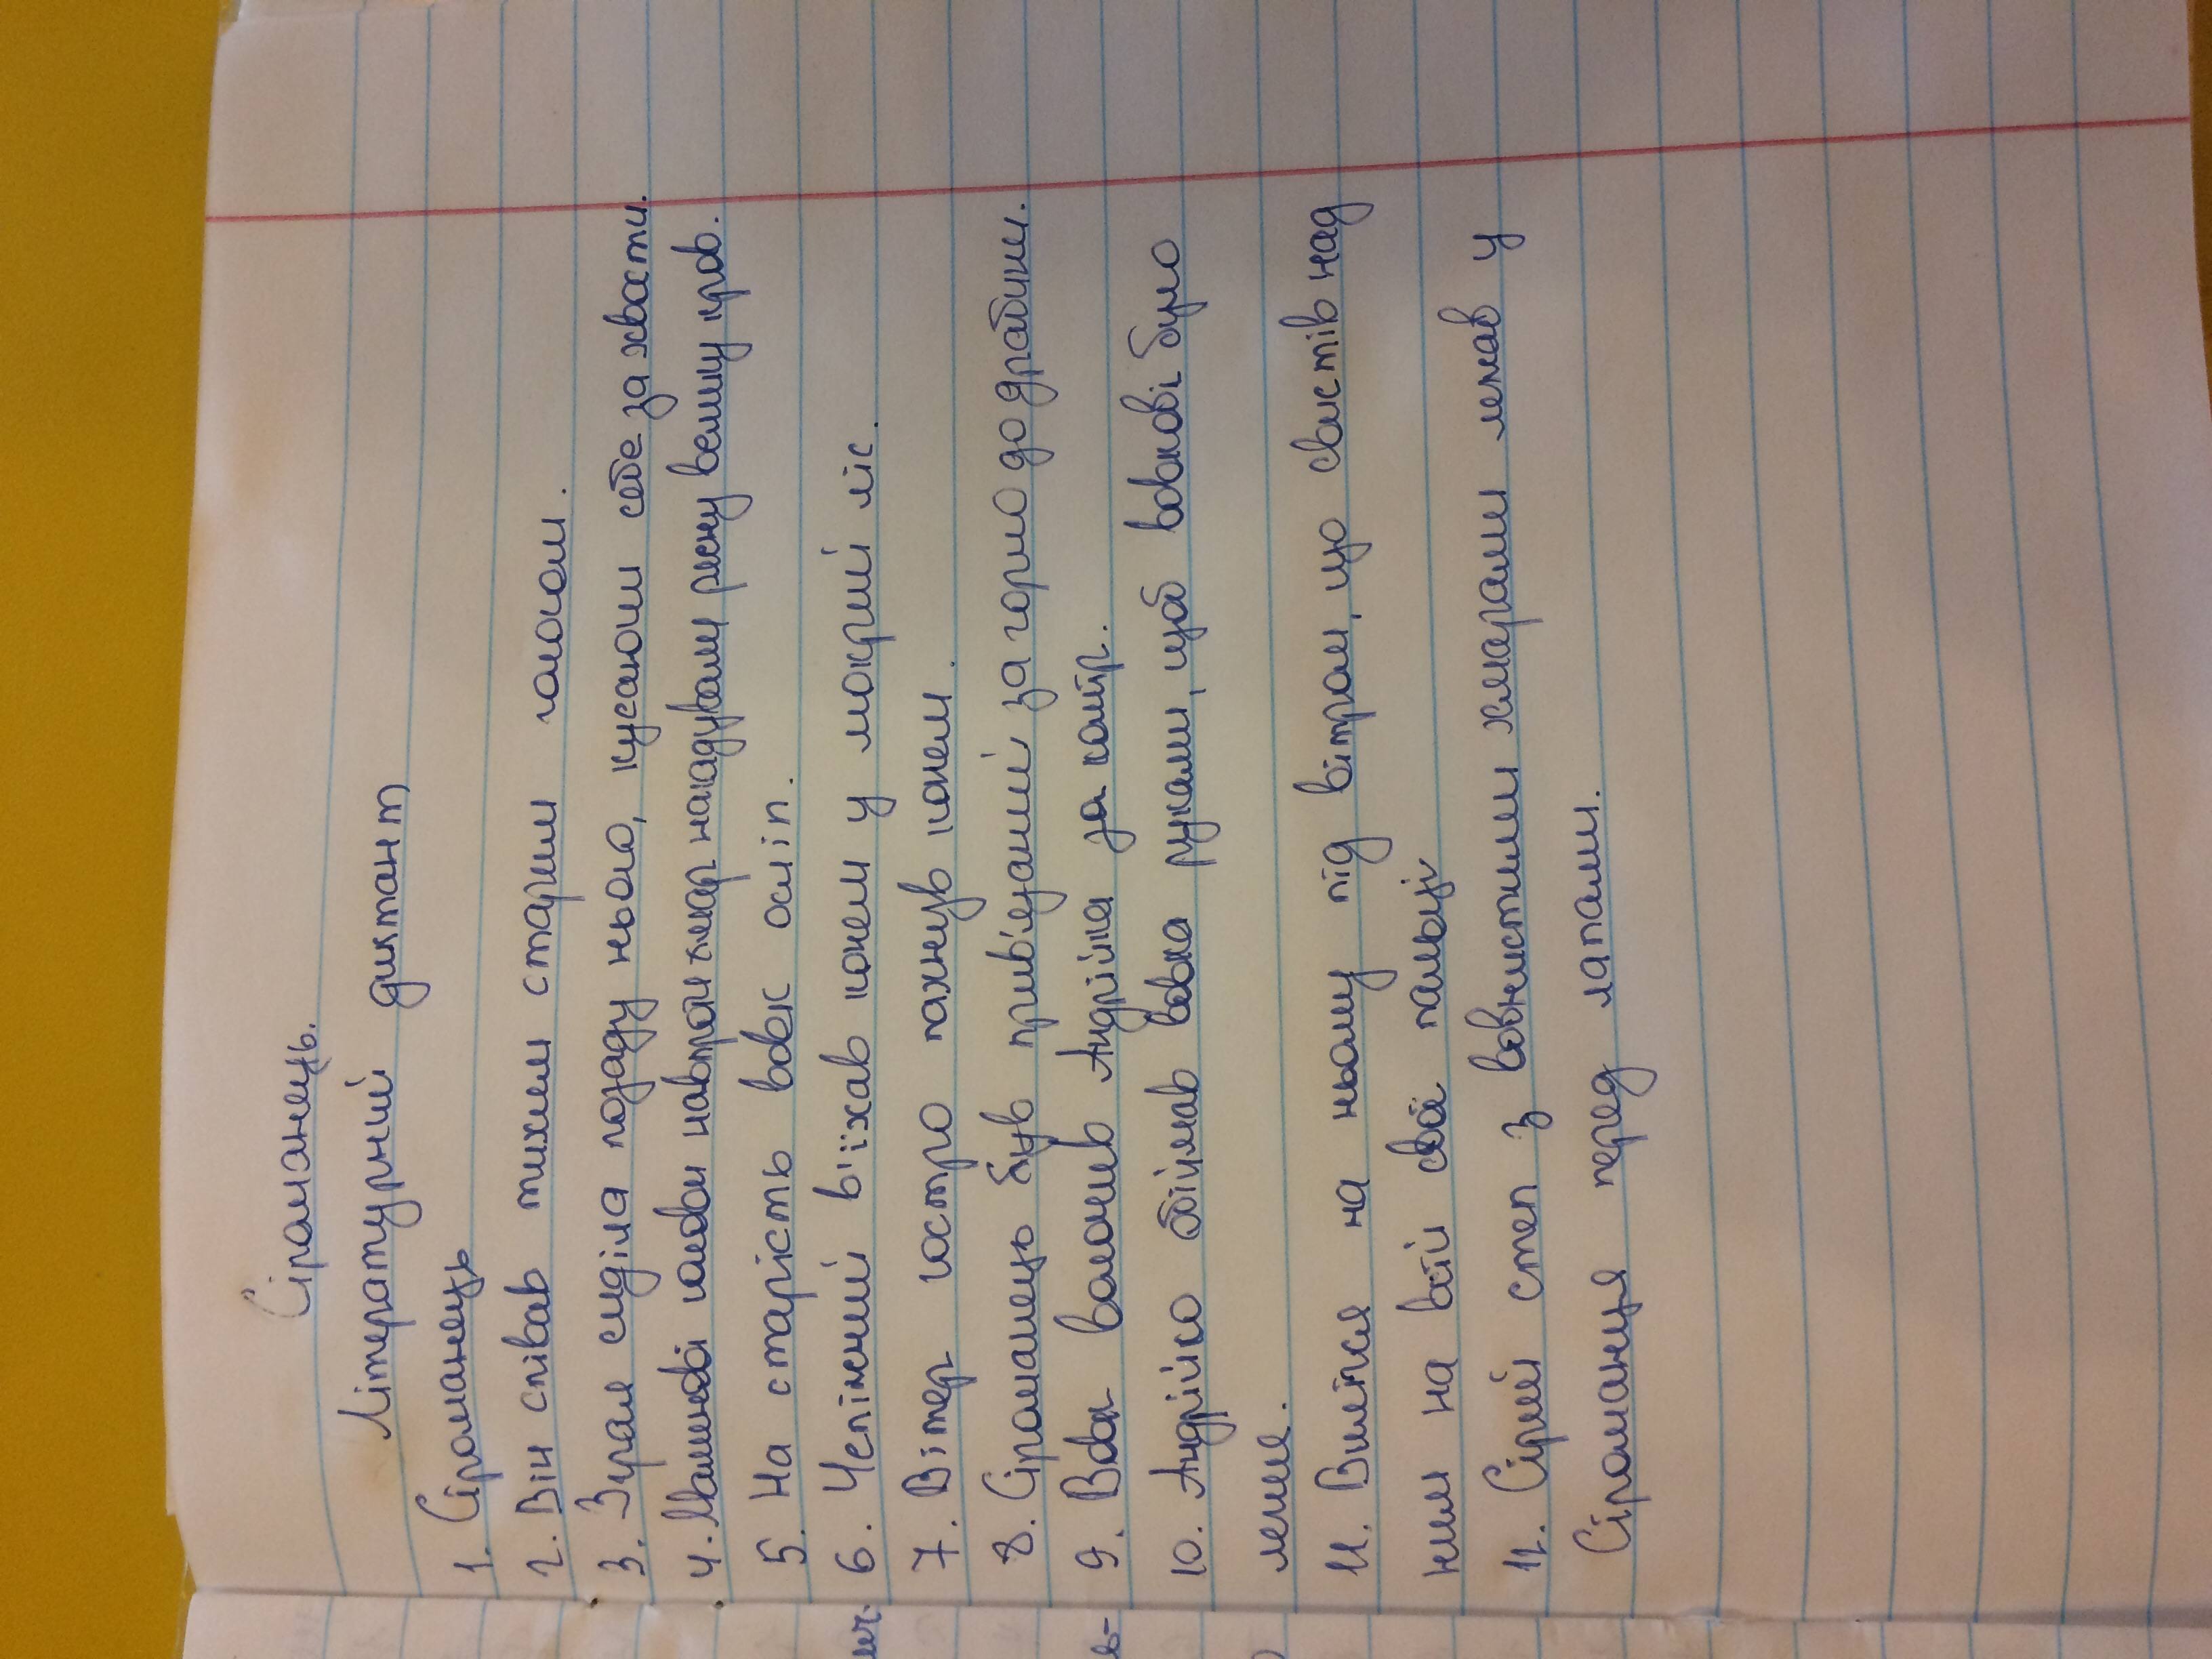 Сіроманець.
Літературний диктант
1. Сіроманець
2. Він співав тихим старим голосом.
3. Зграя сиділа позаду нього, кусаючи себе за хвости.
4. Мамині голови навпроти хмар нагадували рясну велику кров.
5. На старість вовк осліп.
6. Чепіжний в'їхав конем у мокрий ліс.
7. Вітер гостро пахнув конем.
8. Сіроманець був прив'язаний за горло до драбини.
9. Вовк волочив Андрійка за комір.
10. Андрійко обіймав вовка руками, щоб вовкові було
легше.
11. Вилися на ньому під вітром, що свистів над
ним на всій свої пальці
12. Сірий степ з вовнистими хмарами лежав у
Сіроманця перед лапами.